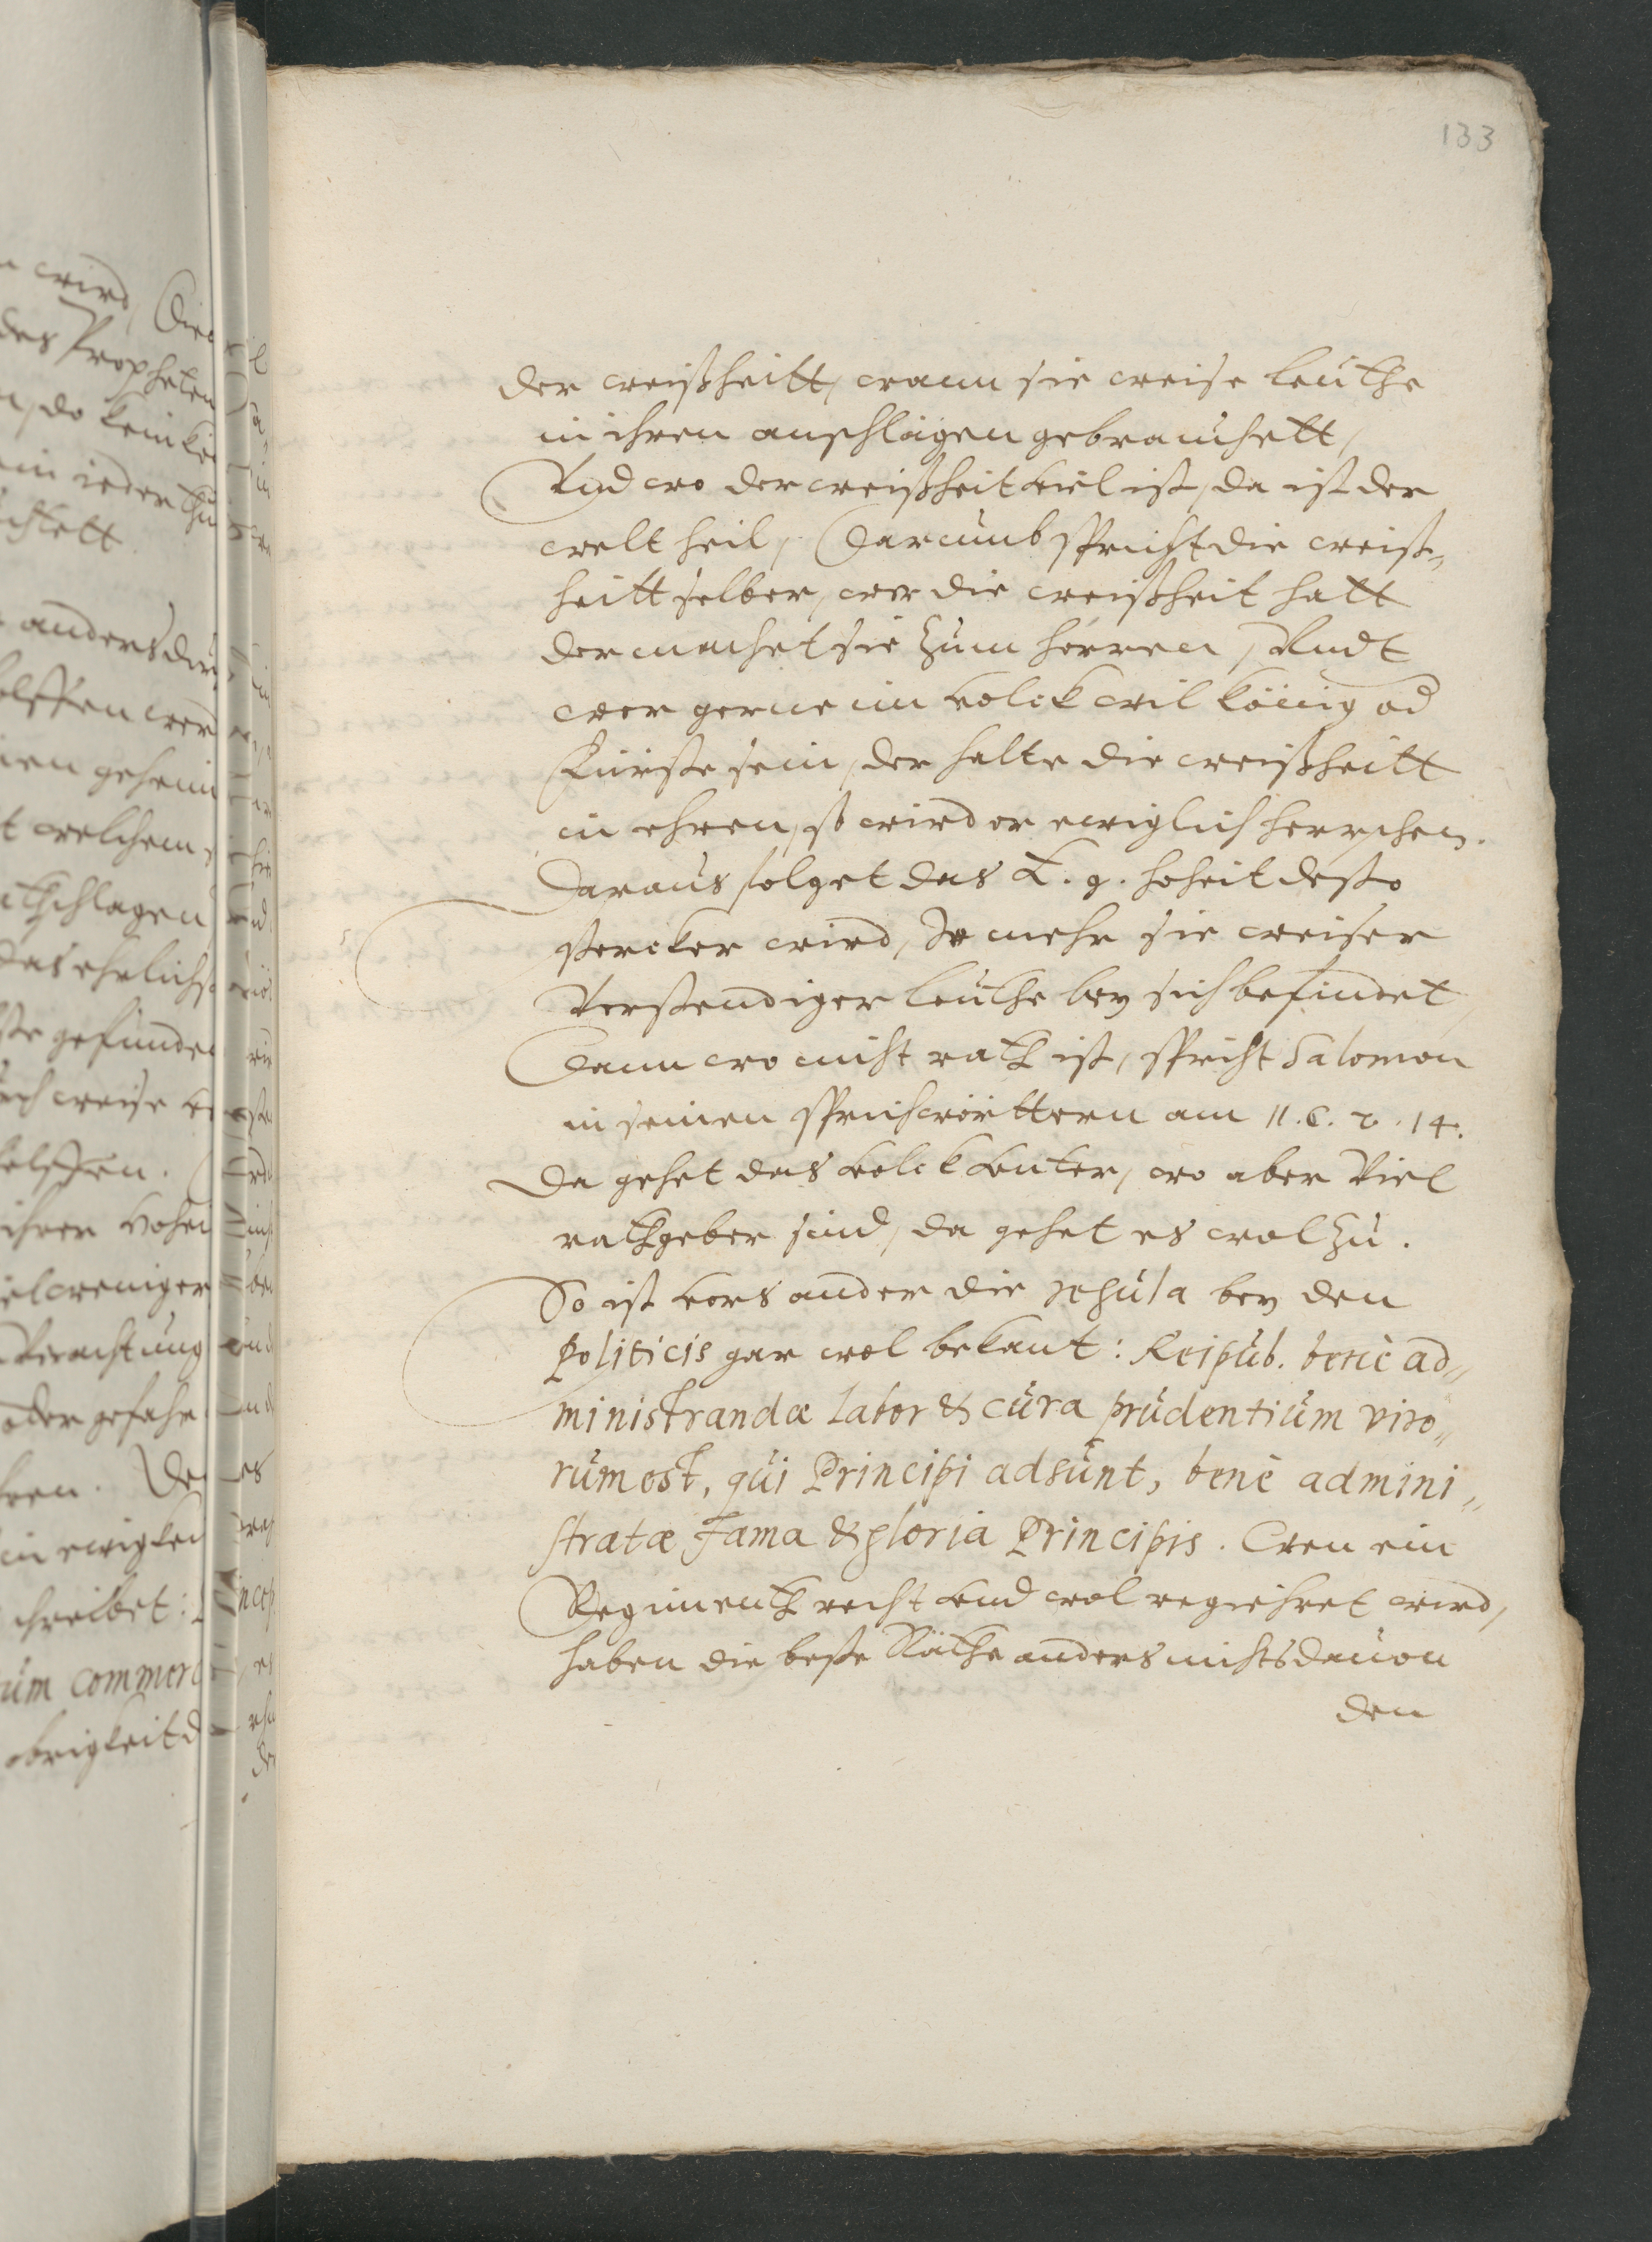 133
der weißheitt, wann sie weise leuthe
in ihren anschlägen gebrauchett,
Vnd wo der weißheit viel ist, da ist der
welt heil, Darumb spricht die weiß„
heitt selber, wer die weißheit hatt
der machet sie zum herren, Vndt
wer gerne im volck wil könig od
Fürste sein, der halte die weißheitt
in ehren, so wird er ewiglich herrschen.
Daraus folget das E. g. hoheit desto
stercker wird, Je mehr sie weiser
Verstendiger leuthe bey sich befindet,
Dann wo nicht rath ist, spricht Salomon
in seinen sprichwörttern am 11. C. v. 14.
Da gehet das volck vnter, wo aber Viel
rathgeber sind, da gehet es wol zu.
So ist vors ander die regula bey den
Politicis gar wol bekant: Reipub. benè ad„
ministrandæ labor & cura prudentium viro„
rum est, qui Principi adsunt, benè admini„
stratæ fama & gloria Principis. Wen ein
Regimenth recht vnd wol regiehret wird,
haben die beste Räthe anders nichts dauon
den